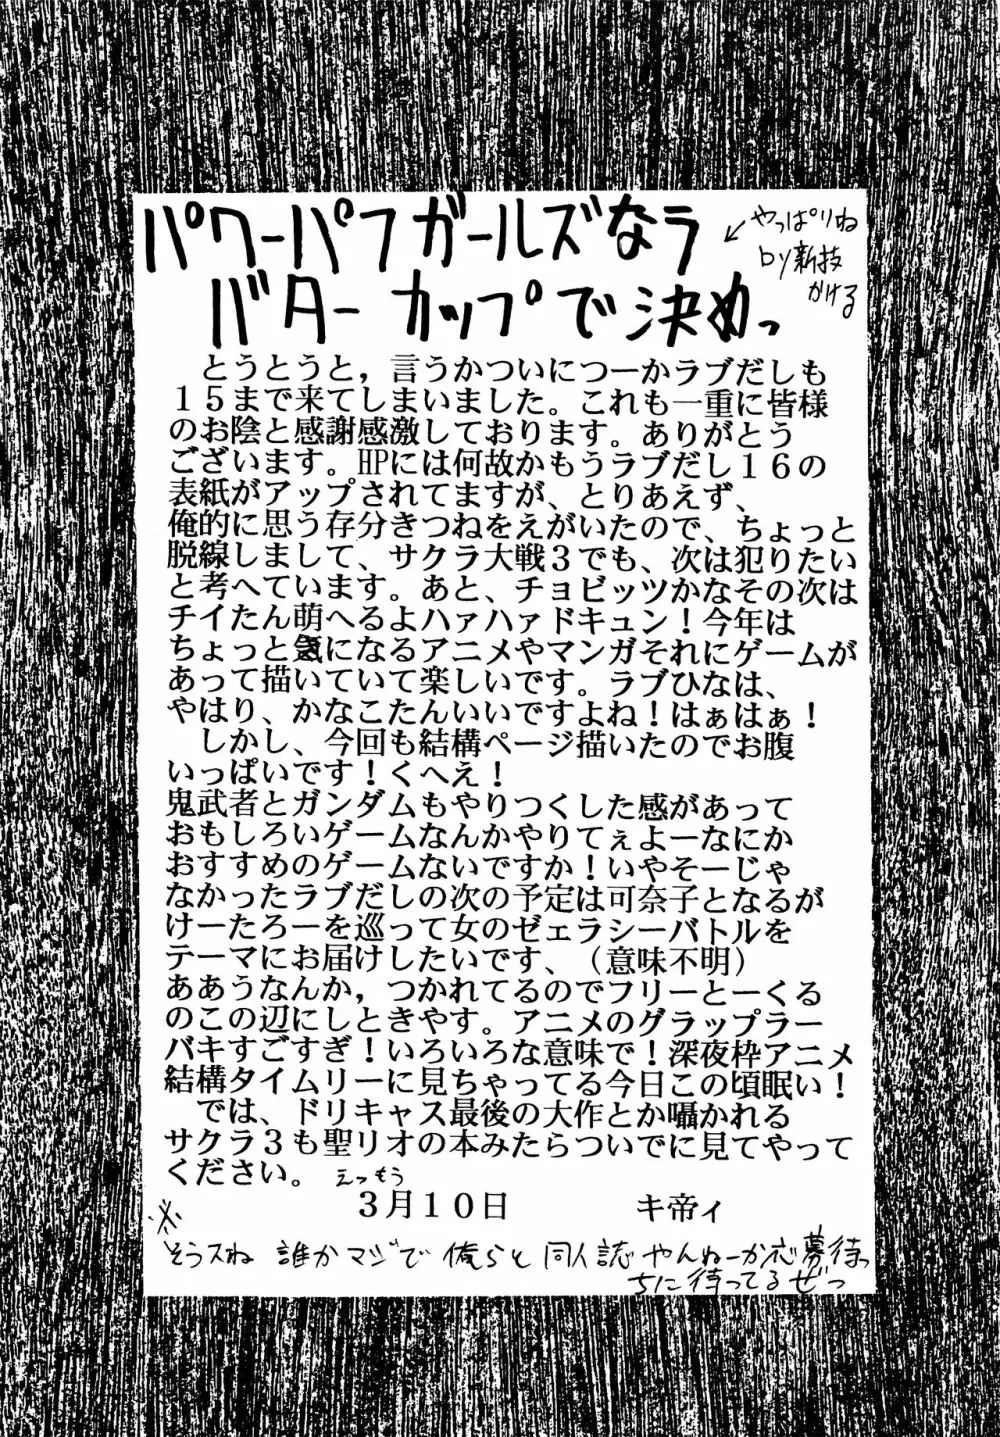 パワーパフガールズなラ
バターカップで決めっ
やっぱりね
by新技
かける
とうとうと，言うかついにつーかラブだしも
１５まで来てしまいました。これも一重に皆様
のお陰と感謝感激しております。ありがとう
ございます。HPには何故かもうラブだし１６の
表紙がアップされてますが、とりあえず、
俺的に思う存分きつねをえがいたので、ちょっと
脱線しまして、サクラ大戦３でも、次は犯りたい
と考へています。あと、チョビッツかなその次は
チイたん萌へるよハァハァドキュン！今年は
ちょっと気になるアニメやマンガそれにゲームが
あって描いていて楽しいです。ラブひなは、
やはり、かなこたんいいですよね！はぁはぁ！
しかし、今回も結構ページ描いたのでお腹
いっぱいです！くへえ！
鬼武者とガンダムもやりつくした感があって
おもしろいゲームなんかやりてぇよーなにか
おすすめのゲームないですか！いやそーじゃ
なかったラブだしの次の予定は可奈子となるが
けーたろーを巡って女のゼェラシーバトルを
テーマにお届けしたいです、（意味不明）
ああうなんか，つかれてるのでフリーとーくる
のこの辺にしときやす。アニメのグラップラー
バキすごすぎ！いろいろな意味で！深夜枠アニメ
結構タイムリーに見ちゃってる今日この頃眠い！
では、ドリキャス最後の大作とか囁かれる
サクラ３も聖リオの本みたらついでに見てやって
ください。えっもう
３月１０日　キ帝ィ
※
そうスね 誰かマジで 俺らと 同人誌 やんねーか応募待っ
ちに待ってるぜっ